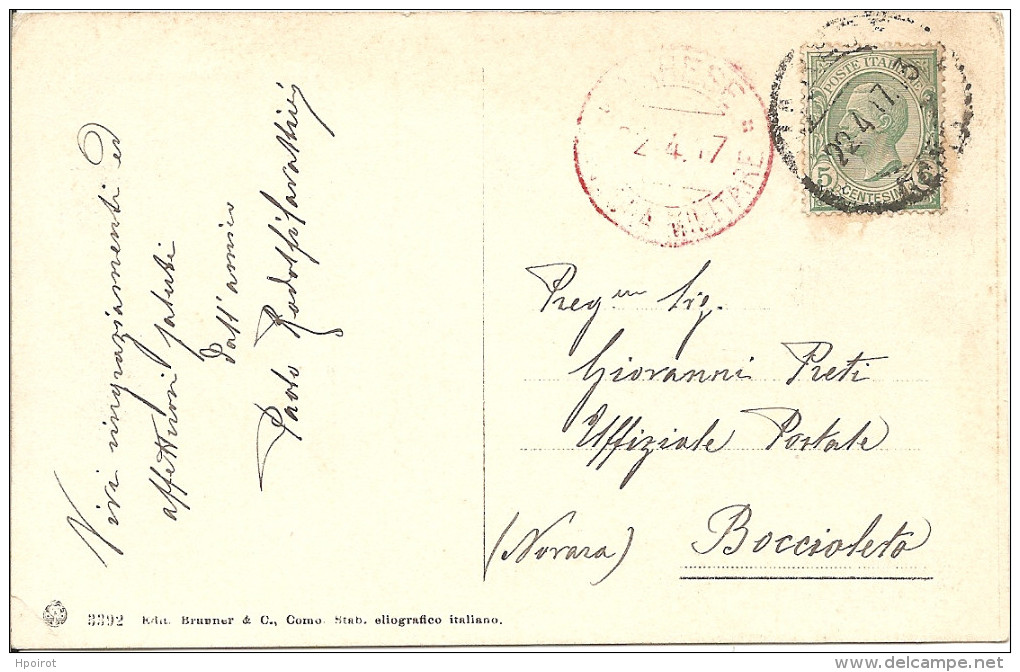 Vivi ringraziamenti ed
affettuosi saluti
dall'amico
Paolo
VARESE
22.4.17
POSTA MILITARE
POSTE ITALIANE
22.4.17
5 CENTESIMI
Preg.mo Sig.
Giovanni Preti
Uffiziale Postale
Boccioleto
(Novara)
3392 Edit. Brunner & C., Como. Stab. eliografico italiano.
Hpoirot
http://www.delcampe.net